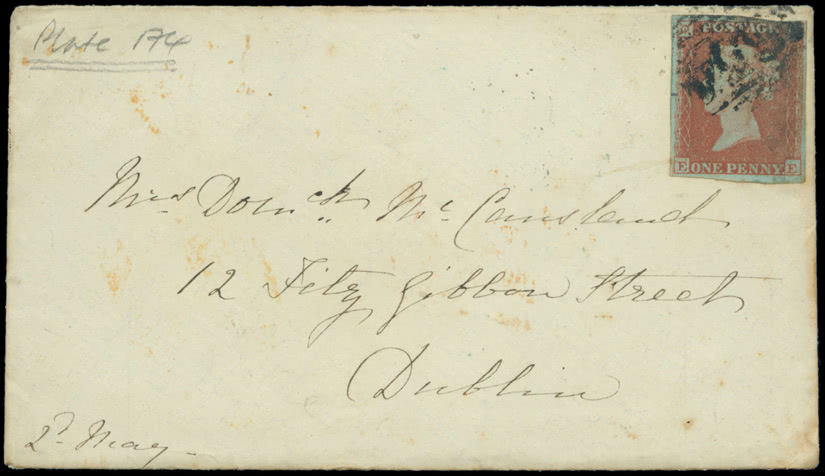 Plate 174
POSTAGE
E ONE PENNY E
Mrs Domck. Mc Causland
12 Fitz Gibbon Street
Dublin
2d May